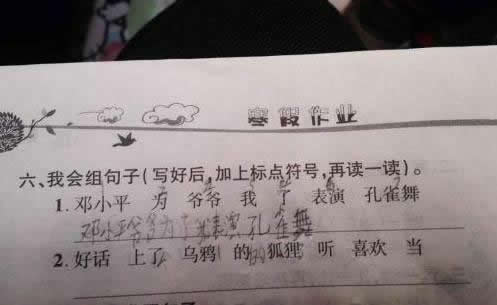 寒假作业
六、我会组句子(写好后,加上标点符号,再读一读)。
1. 邓小平 为 爷爷 我 了 表演 孔雀舞
邓小平爷爷为 表演孔雀舞
2. 好话 上了 乌鸦 的 狐狸 听 喜欢 当